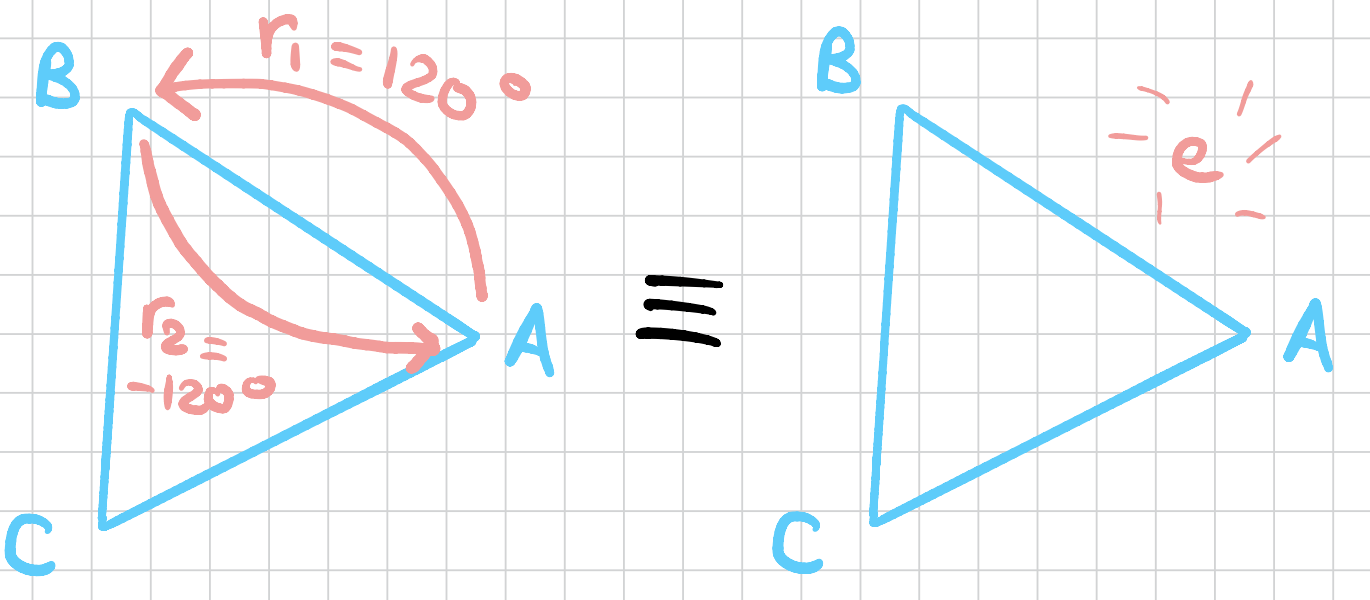 B
r₁ = 120°
r₂ =
-120°
A
C
≡
B
e
A
C